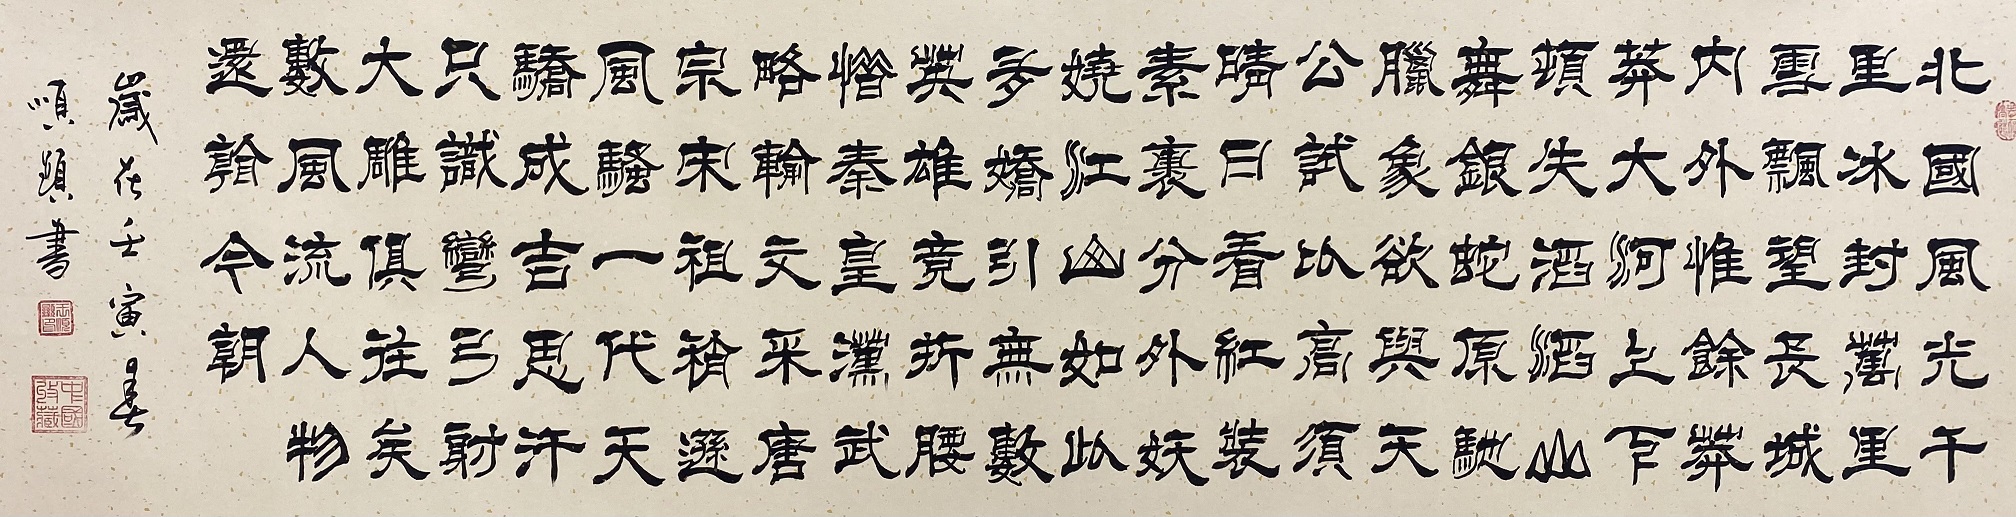 北國風光千
里冰封萬里
雪飄望長城
内外惟餘莽
莽大河上下
頓失滔滔山
舞銀蛇原馳
臘象欲與天
公試比高須
晴日看紅裝
素裹分外妖
嬈江山如此
多嬌引無數
英雄竞折腰
惜秦皇漢武
略輸文采唐
宗宋祖稍遜
風騷一代天
驕成吉思汗
只識彎弓射
大雕俱往矣
數風流人物
還看今朝
歲在壬寅春
書
中國收藏